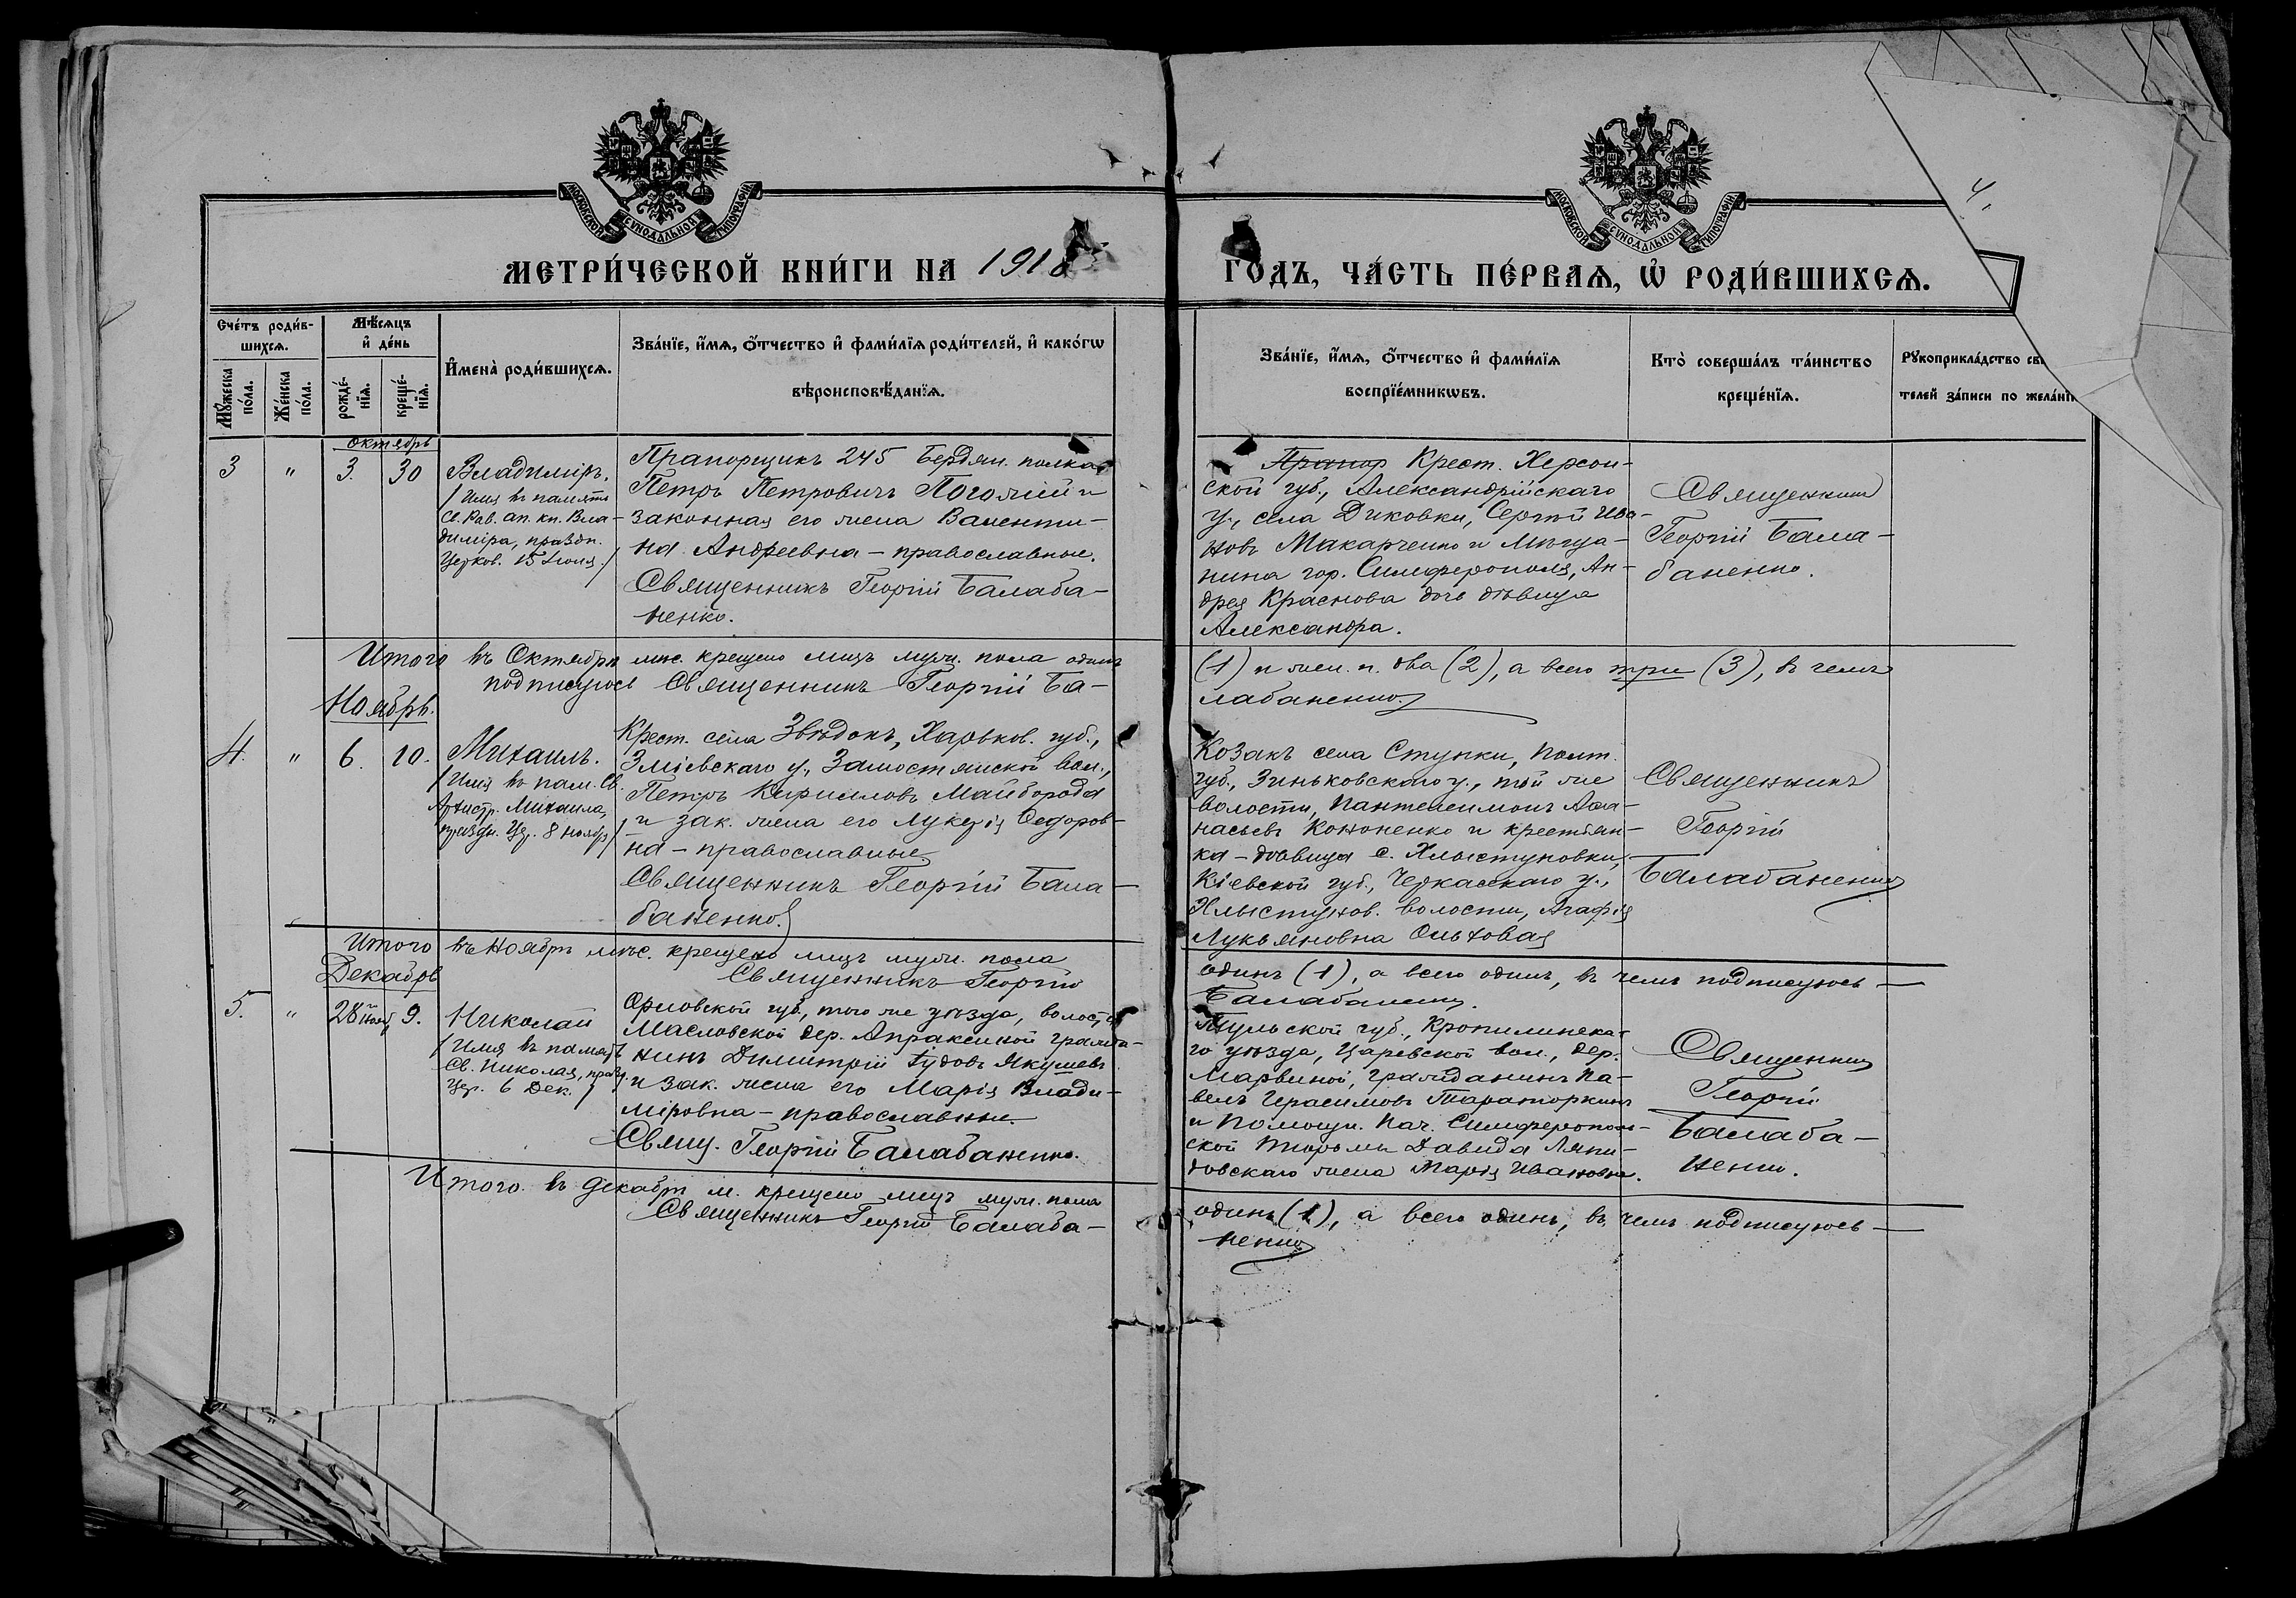 МОСКОВСКОЙ СѴНОДАЛЬНОЙ ТИПОГРАФІИ
МОСКОВСКОЙ СѴНОДАЛЬНОЙ ТИПОГРАФІИ
4.
МЕТРИ́ЧЕСКОЙ КНИ́ГИ НА 1918
ГОДЪ, ЧА́СТЬ ПЕ́РВАѦ, Ѡ҆ РОДИ́ВШИХСѦ.
Сче́тъ роди́в-
шихсѧ.
Мꙋ́жеска по́ла.
Же́нска по́ла.
Мѣ́сѧцъ
и҆ де́нь
рожде́-
нїѧ.
креще́-
нїѧ.
И҆мена̀ роди́вшихсѧ.
Зва́нїе, и҆́мѧ, ѻ҆́тчество и҆ фами́лїѧ роди́телей, и҆ како́гѡ
вѣроисповѣ́данїѧ.
Зва́нїе, и҆́мѧ, ѻ҆́тчество и҆ фами́лїѧ
воспрїе́мникѡвъ.
Кто̀ соверша́лъ та́инство
креще́нїѧ.
Рꙋкоприкла́дство св
телей за́писи по жела́нї
Октябрь
3 " 3. 30
Владиміръ.
/Имя въ память
Св. Рав. ап. кн. Вла-
диміра, праздн.
Церков. 15 Іюля./
Прапорщикъ 245 Бердян. полка
Петръ Петровичъ Погожій и
законная его жена Валенти-
на Андреевна - православные.
Священникъ Георгій Балаба-
ненко.
Прапор Крест. Херсон-
ской губ., Александрійскаго
у., села Диковки, Сергѣй Ива-
новъ Макарченко и мѣща-
нина гор. Симферополя, Ан-
дрея Краснова дочь дѣвица
Александра.
Священникъ
Георгій Бала-
баненко.
Итого въ Октябрѣ мѣс. крещено лицъ муж. пола одинъ
(1) и жен. п. два (2), а всего три (3), въ чемъ
подписуюсь Священникъ Георгій Ба-
лабаненко.
Ноябрь.
4. " 6. 10.
Михаилъ.
/Имя въ пам. Св.
Архистр. Михаила,
праздн. Цер. 8 Ноябр/
Крест. села Звѣдокъ, Харьков. губ.,
Зміевскаго у., Замостянской вол.,
Петръ Кирилловъ Майборода
и зак. жена его Лукерія Федоров-
на - православные
Священникъ Георгій Бала-
баненко
Козакъ села Ступки, Полт.
губ., Зиньковскаго у., той же
волости, Пантелеимонъ Аѳа-
насьевъ Кононенко и крестьян-
ка - дѣвица с. Хлыстуновки,
Кіевской губ., Черкасскаго у.,
Хлыстунов. волости, Агафія
Лукьяновна Ольховая
Священникъ
Георгій
Балабаненко
Итого въ Ноябрѣ мѣс. крещено лицъ муж. пола
одинъ (1), а всего одинъ, въ чемъ подписуюсь -
Священникъ Георгій
Балабаненко.
Декабрь
5. " 28 Нояб. 9.
Николай
/Имя въ память
Св. Николая, празд.
Цер. 6 Дек./
Орловской губ., того же уѣзда, волости
Масловской дер. Апраксиной гражда-
нинъ Димитрій Тудовъ Якушевъ
и зак. жена его Марія Влади-
міровна - православные.
Свящ. Георгій Балабаненко.
Тульской губ., Кропилинска-
го уѣзда, Царевской вол., дер.
Марвиной, гражданинъ Па-
велъ Герасимовъ Тараторкинъ
и Помощн. Нач. Симферополь-
ской тюрьмы Давида Ляпи-
довскаго жена Марія Ивановна.
Священникъ
Георгій
Балаба-
ненко.
Итого въ декабрѣ м. крещено лицъ муж. пола
одинъ (1), а всего одинъ, въ чемъ подписуюсь -
Священникъ Георгій Балаба-
ненко